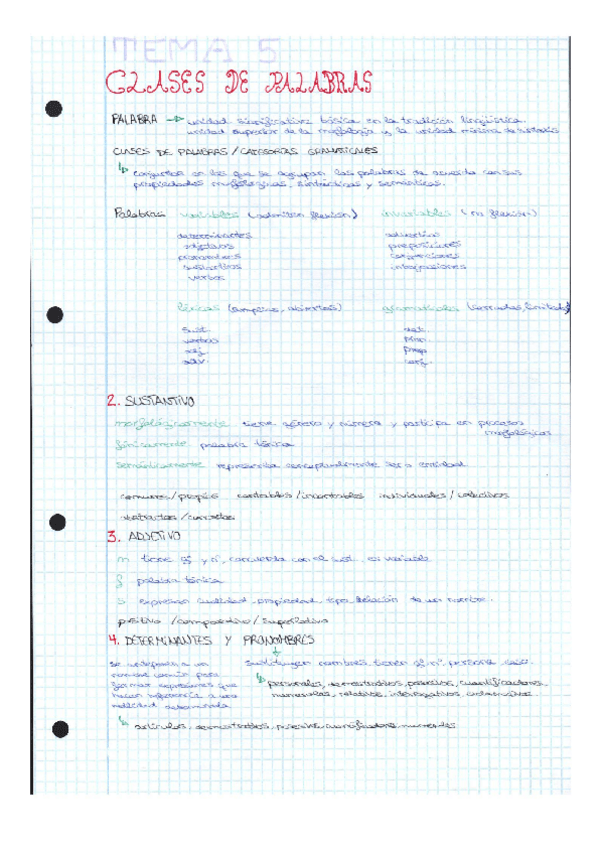 TEMA 5
CLASES DE PALABRAS
PALABRA → unidad significativa básica en la tradición lingüística.
unidad superior de la morfología y la unidad mínima de sintaxis
CLASES DE PALABRAS / CATEGORÍAS GRAMATICALES
↳ conjuntos en los que se agrupan las palabras de acuerdo con sus
propiedades morfológicas, sintácticas y semánticas.
Palabras variables (admiten flexión) invariables (no flexión)
determinantes adverbio
adjetivos preposiciones
pronombres conjunciones
sustantivos interjecciones
verbos
léxicas (amplias, abiertas) gramaticales (cerradas, limitadas)
sust. det.
verbos pron
adj. prep
adv. conj.
2. SUSTANTIVO
morfológicamente tiene género y número y participa en procesos
morfológicos
fónicamente palabra tónica
semánticamente representa conceptualmente una entidad
comunes / propios contables / incontables individuales / colectivos
abstractos / concretos
3. ADJETIVO
m tiene gº y nº, concuerda con el sust. es variable
f palabra tónica
s expresan cualidad, propiedad, tipo, relación de un nombre.
positivo / comparativo / superlativo
4. DETERMINANTES Y PRONOMBRES
↓
se anteponen a un sustituyen nombres, tienen gº, nº, persona, caso.
nombre común para ↳ personales, demostrativos, posesivos, cuantificadores
formar expresiones que numerales, relativos, interrogativos, exclamativos
hacen referencia a una
realidad determinada
↳ artículos, demostrativos, posesivos, cuantificadores, numerales